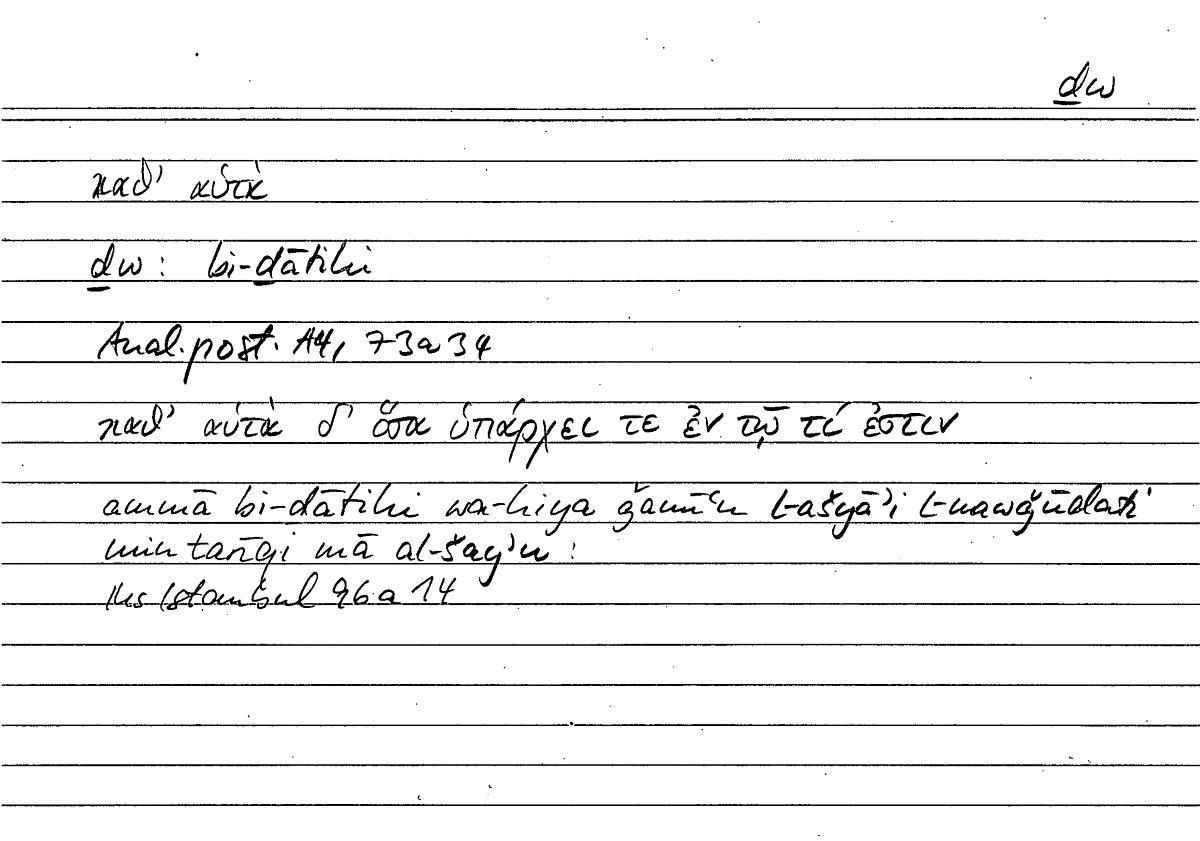 ḏw
καθ' αὑτὰ
ḏw : bi-ḏātihi
Anal. post. A4, 73a34
καθ' αὑτὰ δ' ὅσα ὑπάρχει τε ἐν τῷ τί ἐστιν
ammā bi-ḏātihi wa-hiya ǧamīʿu l-ašyāʾi l-mawǧūdati
min ṭarīqi mā al-šayʾu :
Hs Istanbul 96a14